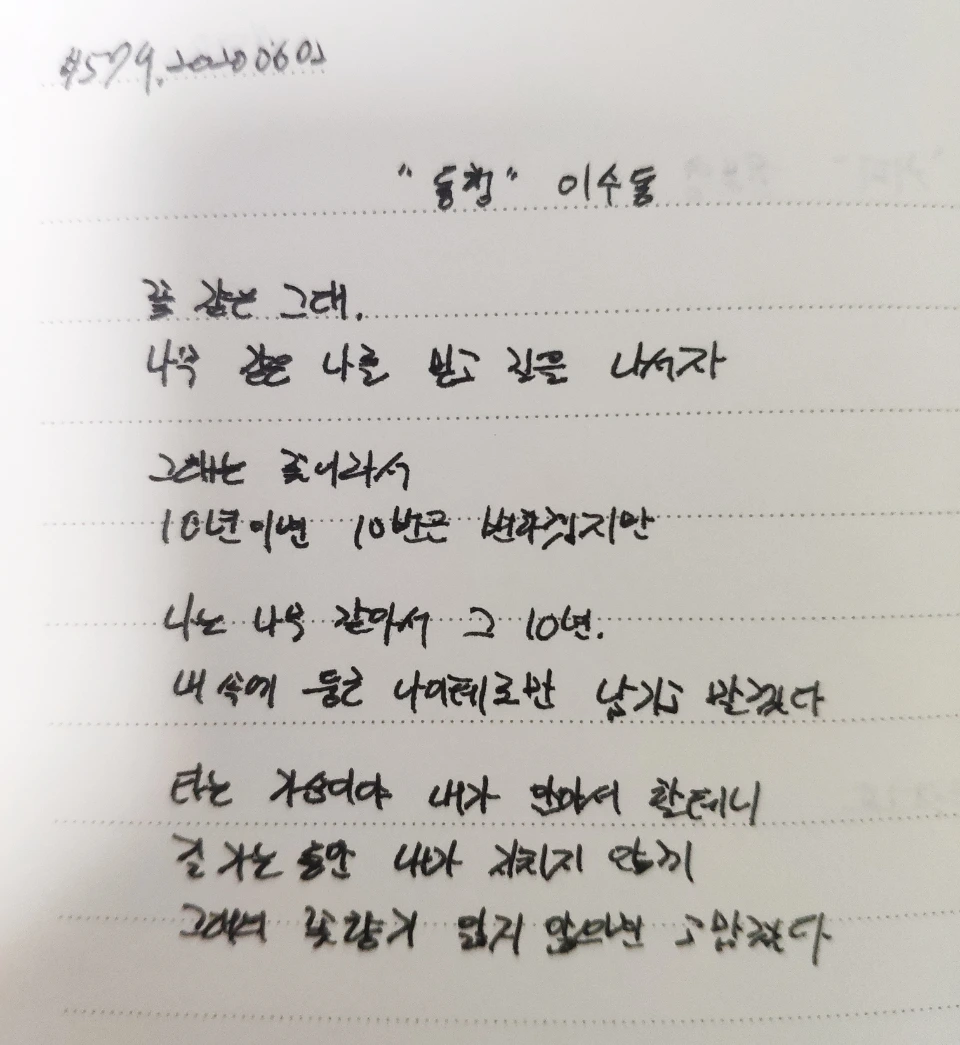 #579. 20200602
"동행" 이수동
꽃 같은 그대.
나무 같은 나를 믿고 길을 나서자
그대는 꽃이라서
10년이면 10번은 변하겠지만
나는 나무 같아서 그 10년.
내 속에 둥근 나이테로만 남기고 말겠다
타는 가슴이야 내가 알아서 할테니
길 가는 동안 내가 지치지 않게
그대의 꽃향기 잃지 않으면 고맙겠다